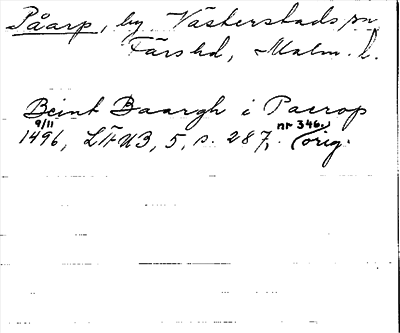 Påarp, by Västerstads sn
Färs hd, Malm. l.
Beint Baargh i Paarop
9/11 nr 346.
1496, LÄUB, 5, s. 287, orig.